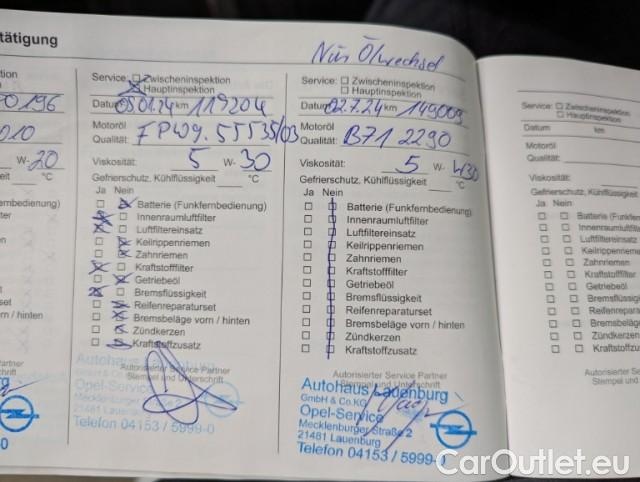 tätigung
Nur Ölwechsel
ktion
20196
010
W- 20
eit °C
ernbedienung)
filter
tz
n
r
it
rset
n / hinten
tz
Partner
rschrift
-0
Service: Zwischeninspektion
Hauptinspektion
Datum 05.01.24 km 119204
Motoröl
Qualität:
Viskosität: 5 W- 30
Gefrierschutz, Kühlflüssigkeit °C
Ja Nein
Batterie (Funkfernbedienung)
Innenraumluftfilter
Luftfiltereinsatz
Keilrippenriemen
Zahnriemen
Kraftstofffilter
Getriebeöl
Bremsflüssigkeit
Reifenreparaturset
Bremsbeläge vorn / hinten
Zündkerzen
Kraftstoffzusatz
Autorisierter Service Partner
Stempel und Unterschrift
Autohaus Lauenburg
GmbH & Co.KG
Opel-Service
Mecklenburger Straße 2
21481 Lauenburg
Telefon 04153 / 5999-0
Service: Zwischeninspektion
Hauptinspektion
Datum 02.7.24 km 149009
Motoröl
Qualität: B71 2290
Viskosität: 5 W30
Gefrierschutz, Kühlflüssigkeit °C
Ja Nein
Batterie (Funkfernbedienung)
Innenraumluftfilter
Luftfiltereinsatz
Keilrippenriemen
Zahnriemen
Kraftstofffilter
Getriebeöl
Bremsflüssigkeit
Reifenreparaturset
Bremsbeläge vorn / hinten
Zündkerzen
Kraftstoffzusatz
Autorisierter Service Partner
Stempel und Unterschrift
Autohaus Lauenburg
GmbH & Co.KG
Opel-Service
Mecklenburger Straße 2
21481 Lauenburg
Telefon 04153 / 5999-0
Service: Zwischeninspektion
Hauptinspektion
Datum km
Motoröl
Qualität:
Viskosität:
Gefrierschutz, Kühlflüssigkeit
Ja Nein
Batterie (Funkfernb
Innenraumluftfilt
Luftfiltereinsatz
Keilrippenriemen
Zahnriemen
Kraftstofffilter
Getriebeöl
Bremsflüssigk
Reifenreparatu
Bremsbeläge
Zündkerzen
Kraftstoffzu
Autorisierter Se
Stempel un
CarOutlet.eu